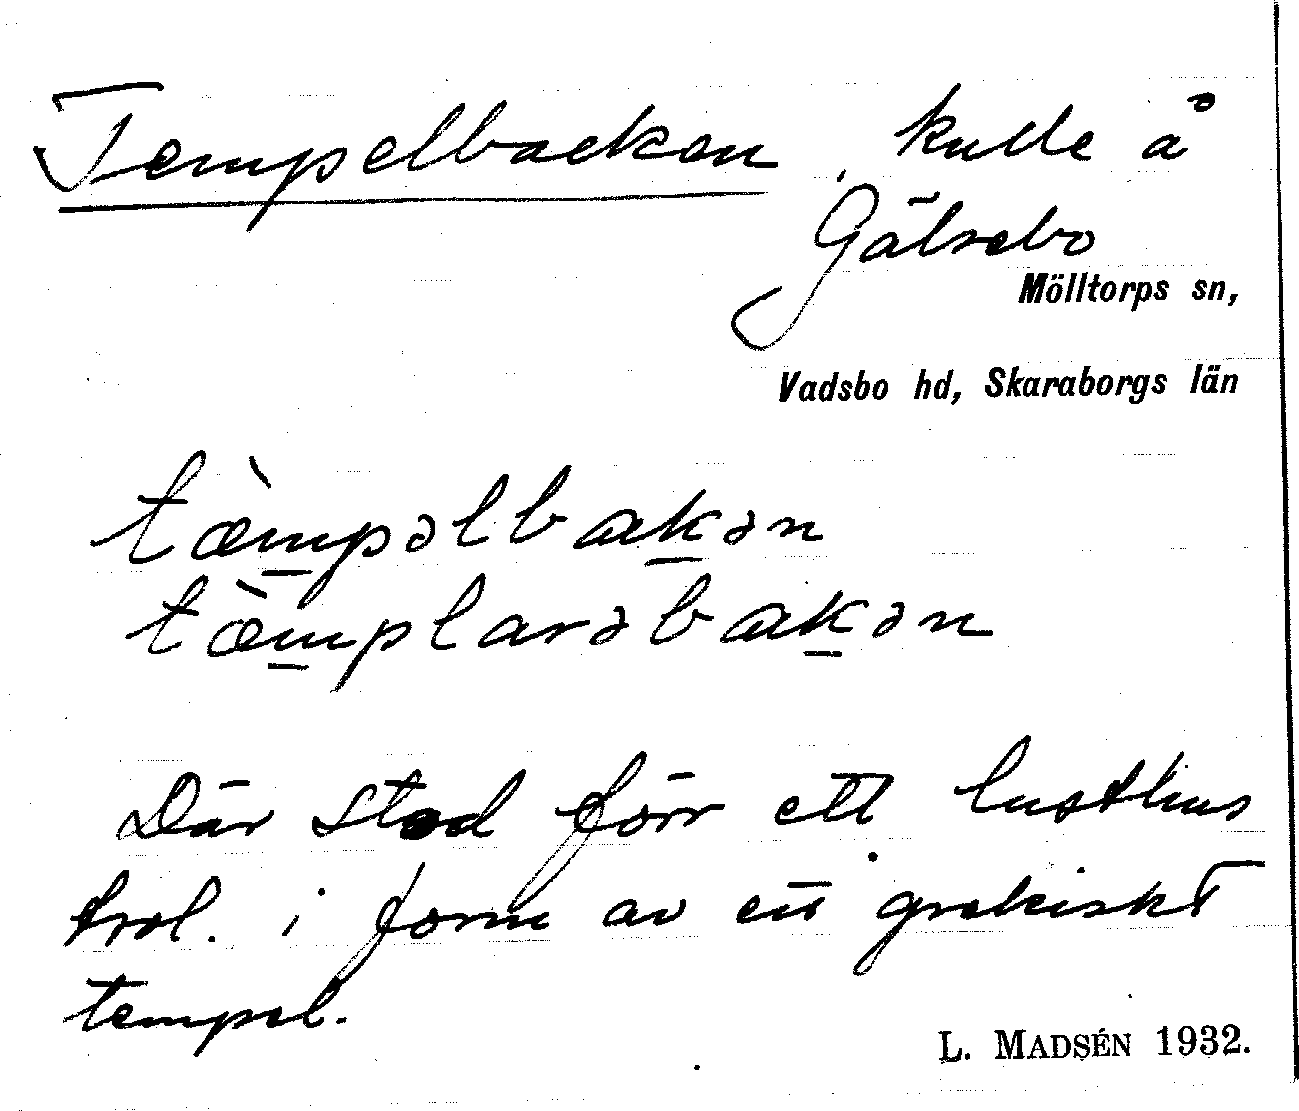 Tempelbacken, kulle å
Gälsebo
Mölltorps sn,
Vadsbo hd, Skaraborgs län
tæ̀m̲pəlbak̲ən
tæ̀m̲plarəbak̲ən
Där stod förr ett lusthus
trol. i form av ett grekiskt
tempel.
L. MADSÉN 1932.